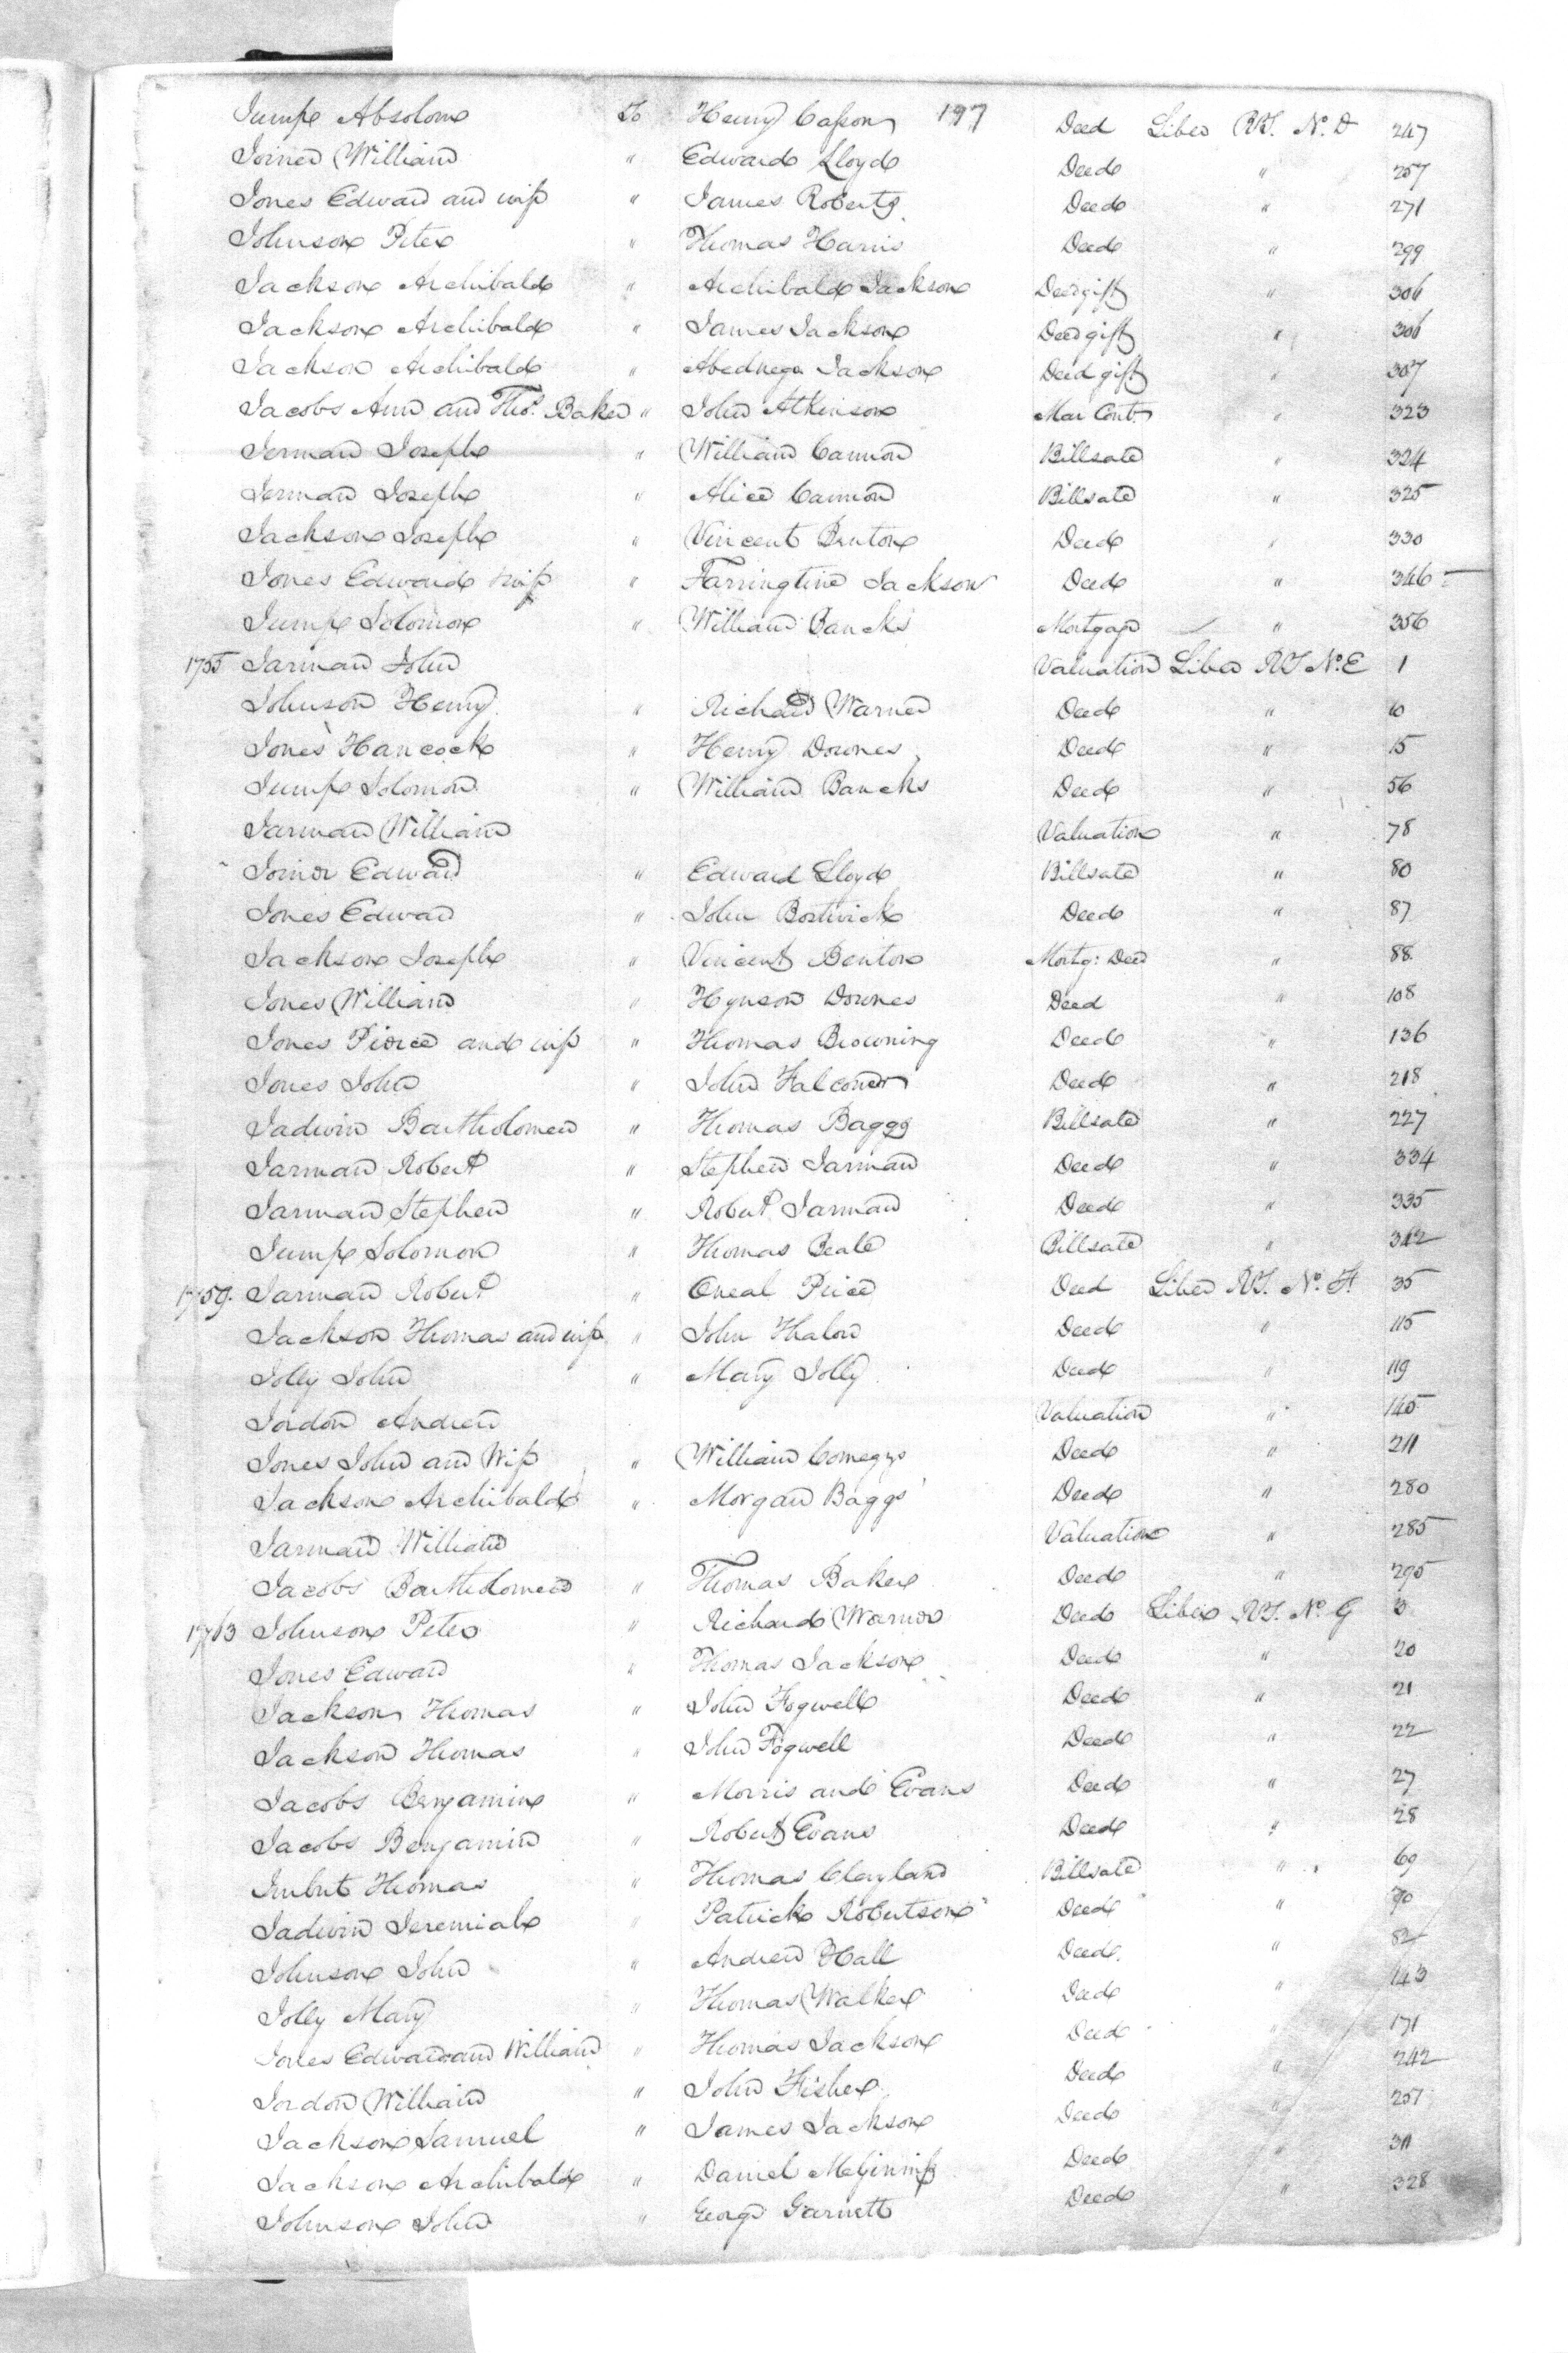 Jump Absolom To Henry Casson 197 Deed Liber RT. No. D 247
Joiner William " Edward Lloyd Deed " 257
Jones Edward and wife " James Roberts Deed " 271
Johnson Peter " Thomas Harris Deed " 299
Jackson Archibald " Archibald Jackson Deed gift " 306
Jackson Archibald " James Jackson Deed gift " 306
Jackson Archibald " Abednego Jackson Deed gift " 307
Jacobs Ann and Thos. Baker " John Atkinson Mar Cont. " 323
Jerman Joseph " William Cannon Billsale " 324
Jerman Joseph " Alice Cannon Billsale " 325
Jackson Joseph " Vincent Benton Deed " 330
Jones Edward & wife " Farringtine Jackson Deed " 346
Jump Solomon " William Bancks Mortgage " 356
1755 Jarman John Valuation Liber RT No. E 1
Johnson Henry " Richard Warner Deed " 10
Jones Hancock " Henry Downes Deed " 15
Jump Solomon " William Bancks Deed " 56
Jarman William Valuation " 78
Joiner Edward " Edward Lloyd Billsale " 80
Jones Edward " John Bostwick Deed " 87
Jackson Joseph " Vincent Benton Mortg: Deed " 88
Jones William " Hynson Downes Deed " 108
Jones Pierce and wife " Thomas Browning Deed " 136
Jones John " John Falconer Deed " 218
Jadwin Bartholomew " Thomas Baggs Billsale " 227
Jarman Robert " Stephen Jarman Deed " 334
Jarman Stephen " Robert Jarman Deed " 335
Jump Solomon " Thomas Beale Billsale " 342
1759 Jarman Robert " Oneal Price Deed Liber RT. No. F 35
Jackson Thomas and wife " John Deed " 115
Jolly John " Mary Jolly Deed " 119
Jordon Andrew Valuation " 145
Jones John and Wife " William Comegys Deed " 211
Jackson Archibald " Morgan Baggs Deed " 280
Jarman William Valuation " 285
Jacobs Bartholomew " Thomas Baker Deed " 295
1763 Johnson Peter " Richard Warner Deed Liber RT. No. G 3
Jones Edward " Thomas Jackson Deed " 20
Jackson Thomas " John Fogwell Deed " 21
Jackson Thomas " John Fogwell Deed " 22
Jacobs Benjamin " Morris and Evans Deed " 27
Jacobs Benjamin " Robert Evans Deed " 28
Thomas " Thomas Clayland Billsale " 69
Jadwin Jeremiah " Patrick Robertson Deed " 70
Johnson John " Andrew Hall Deed " 82
Jolly Mary " Thomas Walker Deed " 143
Jones Edward and William " Thomas Jackson Deed " 171
Jordon William " John Fisher Deed " 242
Jackson Samuel " James Jackson Deed " 257
Jackson Archibald " Daniel McGinniss Deed " 311
Johnson John " George Garnett Deed " 328